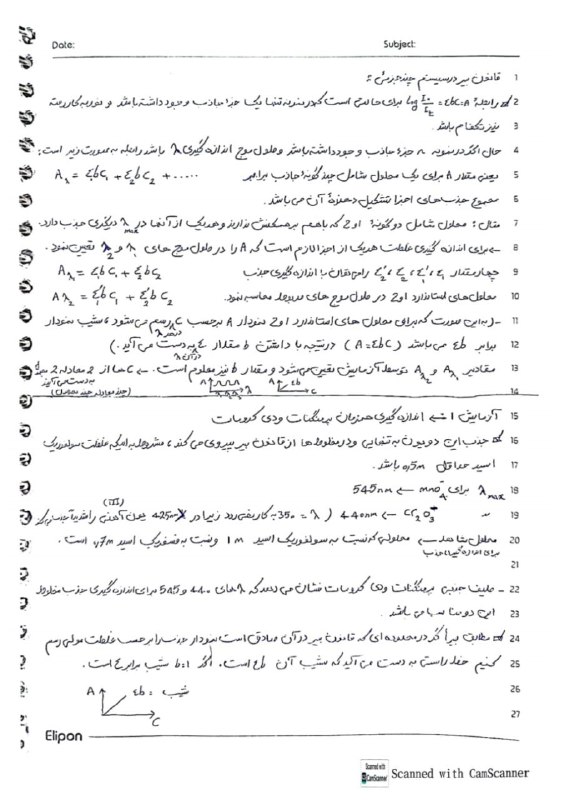 Date:
Subject:
1 قانون بیر در سیستم چند جزئی :
2 رابطه log I₀/It = εbc = A برای حالتی است که در نمونه تنها یک جزء جاذب وجود داشته باشد و نور به کار رفته
3 نیز تکفام باشد.
4 حال اگر در نمونه n جزء جاذب وجود داشته باشد و طول موج اندازه گیری λ باشد رابطه به صورت زیر است:
5 یعنی مقدار A برای یک محلول شامل چند گونه جاذب برابر Aλ = ε₁bC₁ + ε₂bC₂ + .....
6 مجموع جذب های اجزا تشکیل دهنده آن می باشد.
7 مثال: محلول شامل دو گونه 1 و 2 که باهم برهمکنش ندارند و هر یک از آنها در λmax دیگری جذب دارد.
8 ← برای اندازه گیری غلظت هر یک از اجزا لازم است که A را در طول موج های λ₁ و λ₂ تعیین نمود.
9 چهار مقدار ε₁, ε'₁, ε₂, ε'₂ را می توان با اندازه گیری جذب Aλ₁ = ε₁bC₁ + ε₂bC₂
10 محلول های استاندارد 1 و 2 در طول موج های مربوط محاسبه نمود. Aλ₂ = ε'₁bC₁ + ε'₂bC₂
11 - (به این صورت که برای محلول های استاندارد 1 و 2 نمودار A برحسب C رسم می شود، شیب نمودار در هر λ
12 برابر εb می باشد (A = εbC) در نتیجه با داشتن b مقدار ε به دست می آید.) در آن λ
13 مقادیر Aλ₁ و Aλ₂ توسط آزمایش تعیین می شود و مقدار b نیز معلوم است. ← C ها از 2 معادله 2 مجهول به دست می آیند
14 A λ A εb C (چند معادله چند مجهول)
15 آزمایش 1 ← اندازه گیری همزمان پرمنگنات و دی کرومات
16 جذب این دو یون به تنهایی و در مخلوط ها از قانون بیر پیروی می کند، مشروط به اینکه غلظت سولفوریک
17 اسید حداقل 0,5m باشد.
18 λmax برای mno₄⁻ ← 545nm
19 " Cr₂O₃⁼ ← 440nm ( λ = 350 به کار نمی رود زیرا در 425nm یون آهن (III)
20 محلول شاهد ← محلولی که نسبت به سولفوریک اسید 1m و نسبت به فسفریک اسید 0,7m است. برای اندازه گیری جذب
21
22 - طیف جذبی پرمنگنات و دی کرومات نشان می دهد که λ های 440 و 545 برای اندازه گیری جذب مخلوط
23 این دو مناسب می باشد.
24 مطابق بیر اگر در محدوده ای که قانون بیر در آن صادق است نمودار جذب را برحسب غلظت مولی رسم
25 کنیم خط راستی به دست می آید که شیب آن εb است. اگر b=1 شیب برابر ε است.
26 A شیب = εb
27 C
Elipon
Scanned with CamScanner
Scanned with CamScanner